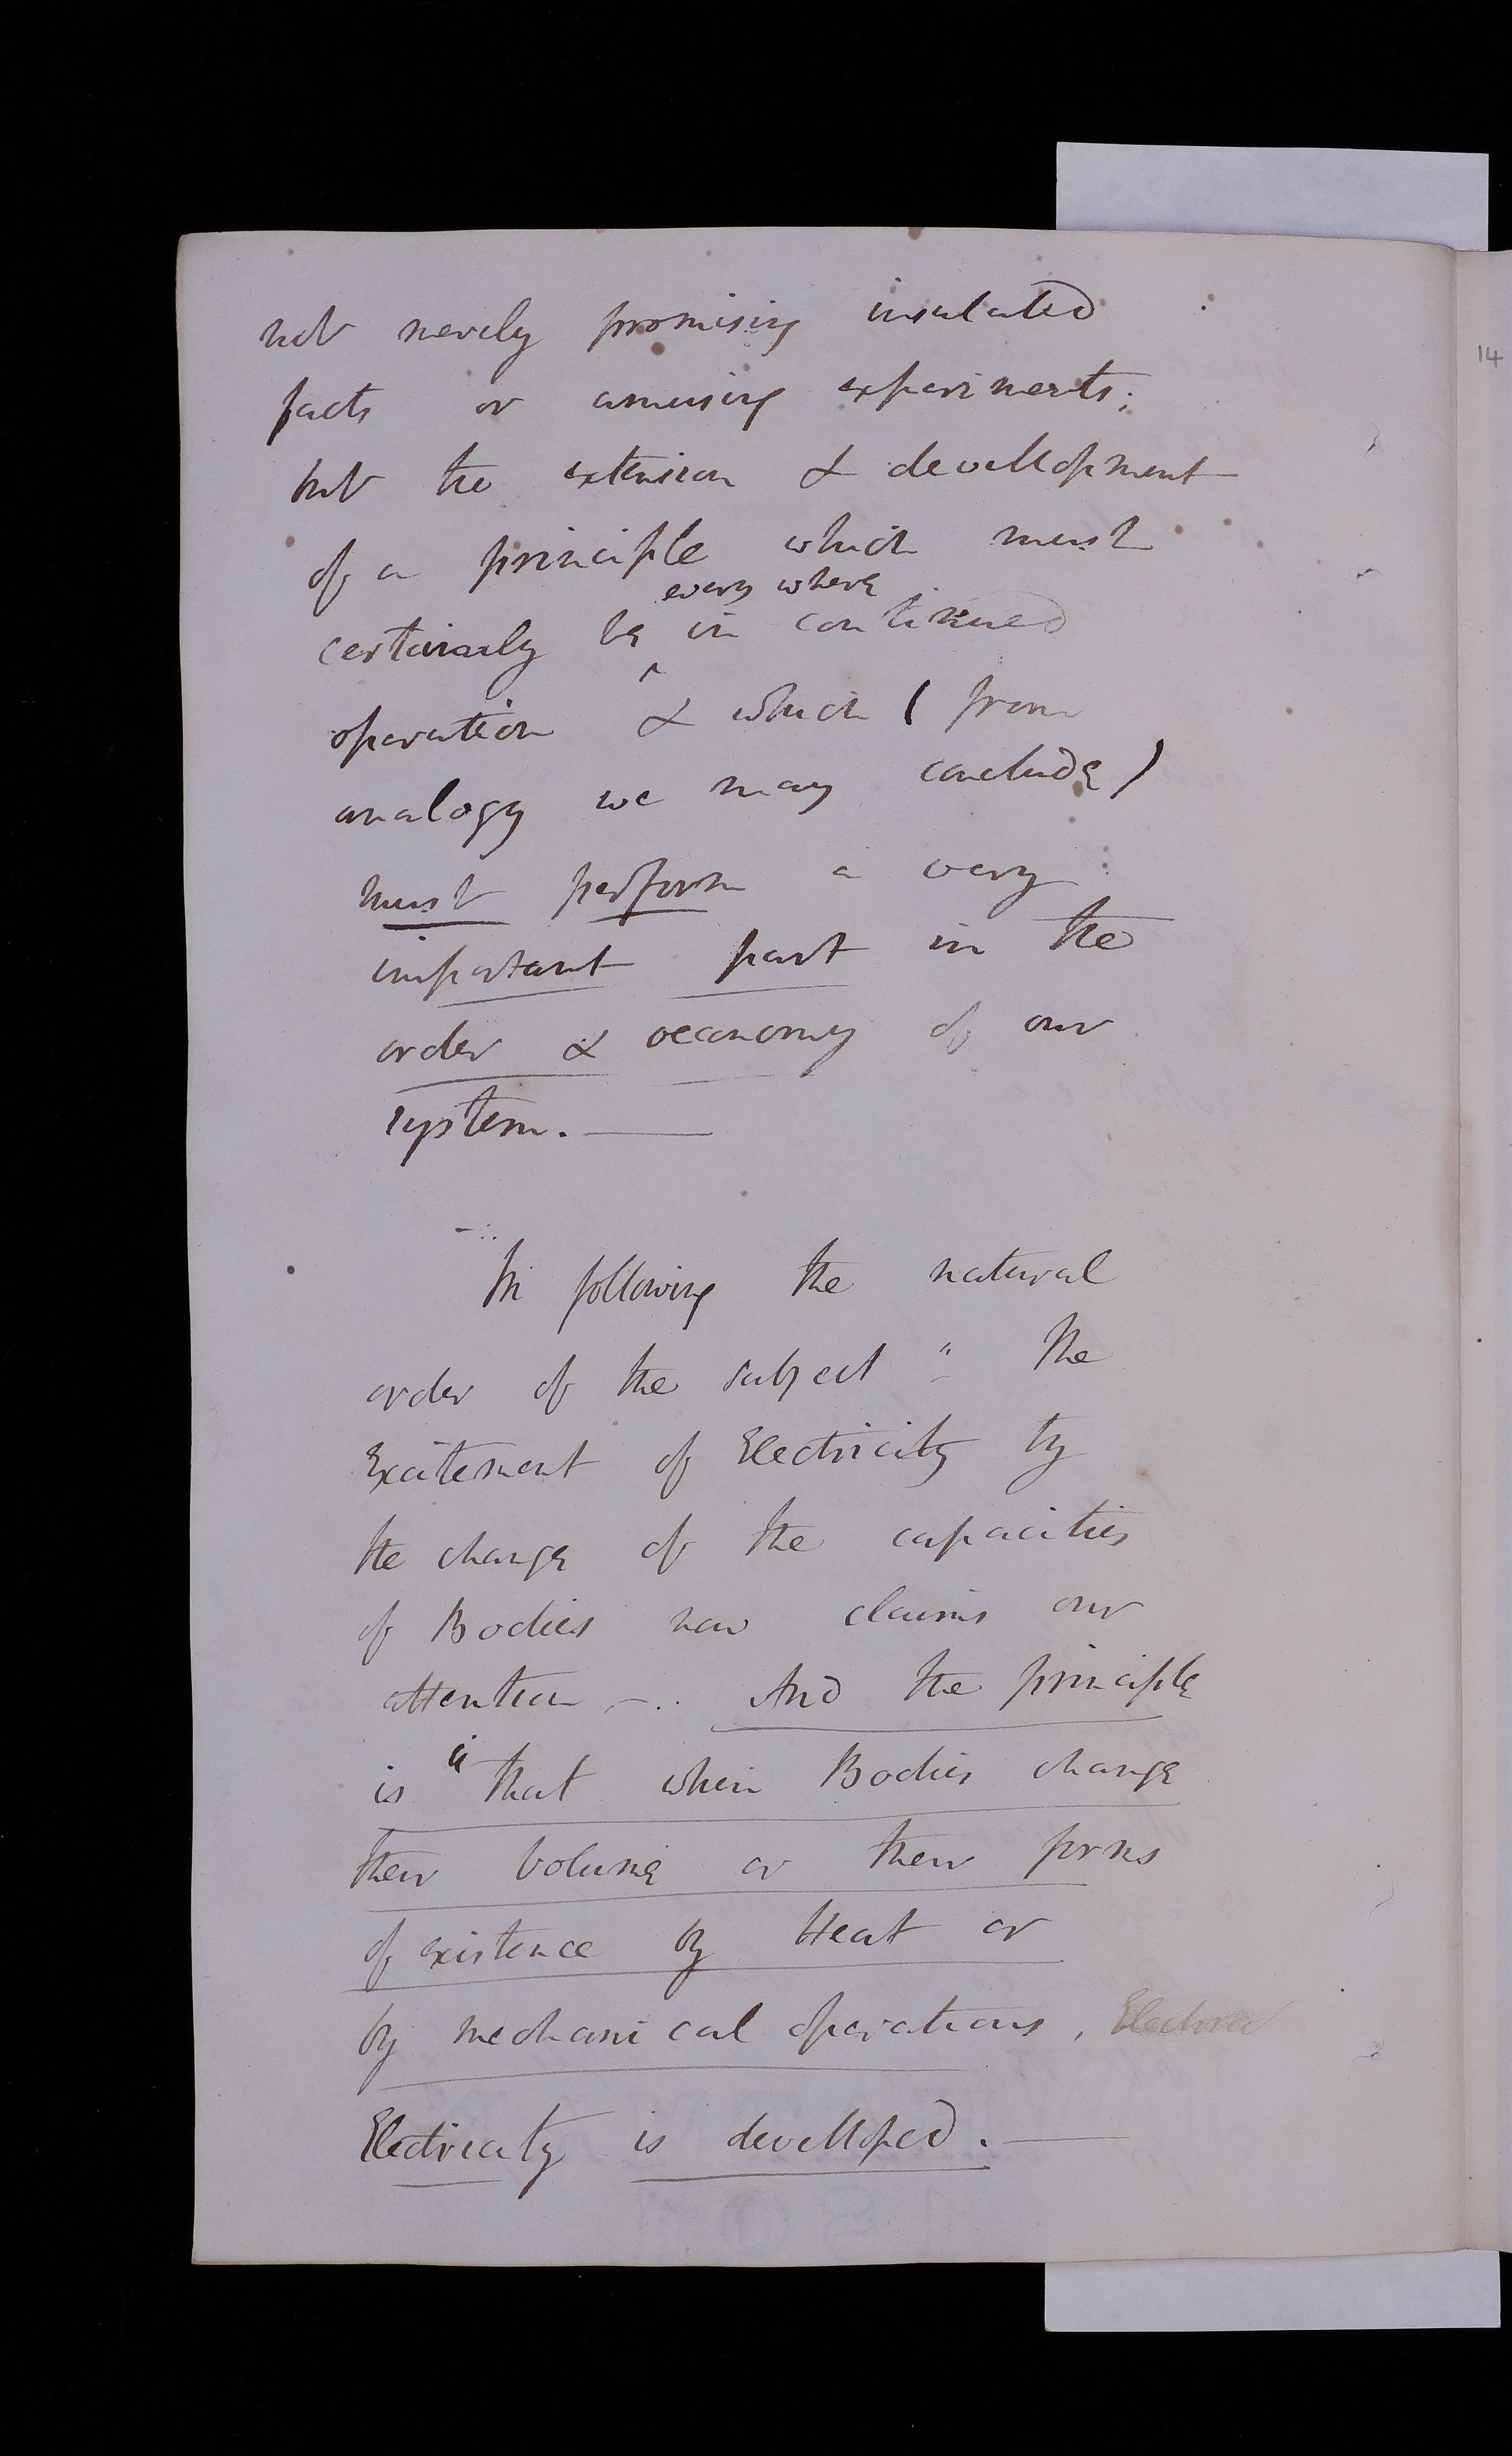 not merely promising insulated
facts or amusing experiments;
but the extension & devellopment
of a principle which must
every where
certainly be in continued
operation & which ( from
analogy we may conclude )
must perform a very
important part in the
order & oeconomy of our
system. —
In following the natural
order of the subject " The
Excitement of Electricity by
the change of the capacities
of Bodies now claims our
attention –.. And the principle
is " that when Bodies change
their volume or their forms
of existence by Heat or
by mechanical operations, Electrical
Electricity is develloped. —
14